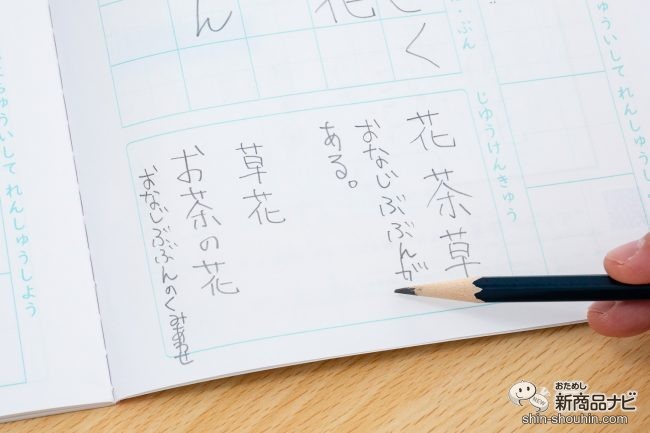 ゅういして れんしゅう
ぶん
じゆうけんきゅう
く
花
ん
花 茶 草
おなじぶぶんが
ある。
草花
お茶の花
おなじぶぶんのくみあわせ
ゅういして れんしゅうしよう
おためし
新商品ナビ
NEW
shin-shouhin.com